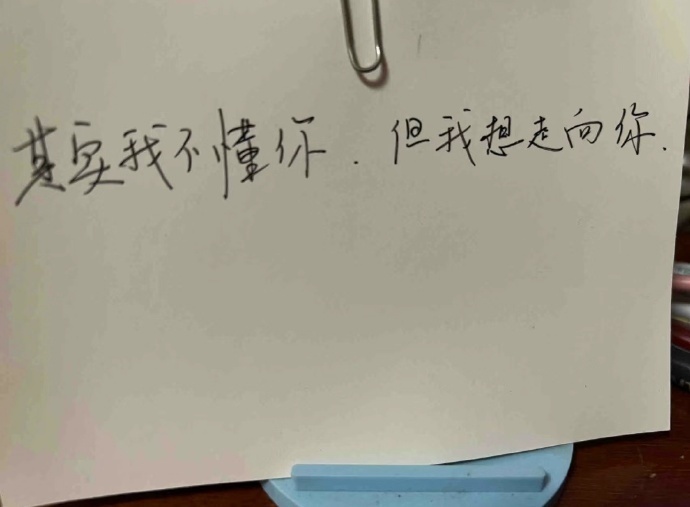 其实我不懂你.但我想走向你.